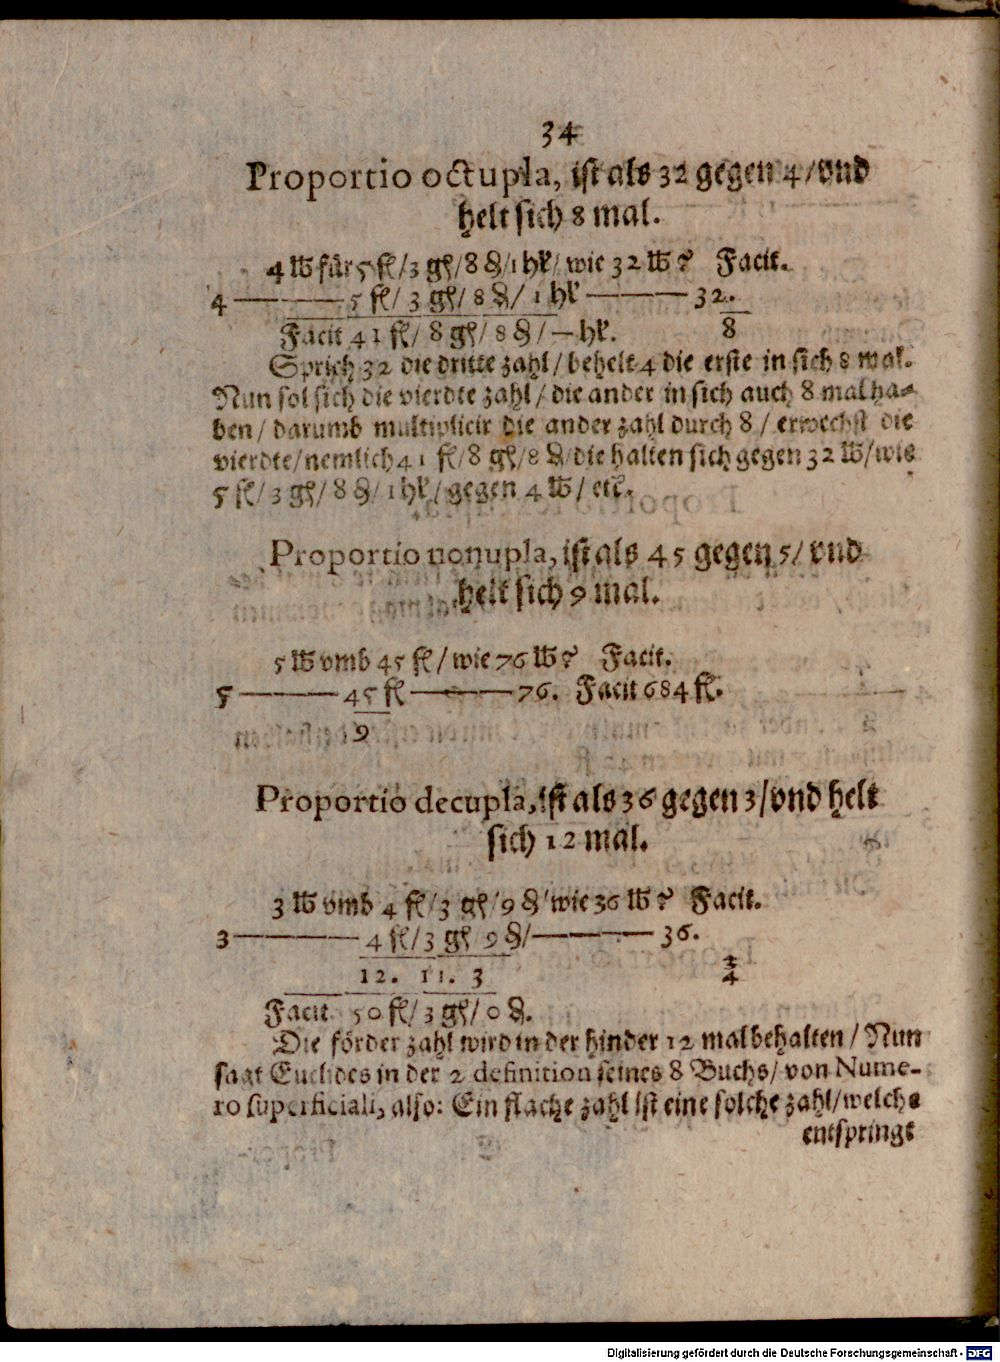 34
Proportio octupla, ist als 32 gegen 4/ vnd
helt sich 8 mal.
4 ℔ für 5 fl/ 3 gl/ 8 ₰/ 1 hl/ wie 32 ℔? Facit.
4 ——— 5 fl/ 3 gl/ 8 ₰/ 1 hl ——— 32.
Facit 41 fl/ 8 gl/ 8 ₰/ — hl. 8
Sprich 32 die dritte zahl/ behelt 4 die erste in sich 8 mal.
Nun sol sich die vierdte zahl/ die ander in sich auch 8 mal ha-
ben/ darumb multiplicir die ander zahl durch 8/ erwechst die
vierdte/ nemlich 41 fl/ 8 gl/ 8 ₰ die halten sich gegen 32 ℔/ wie
5 fl/ 3 gl/ 8 ₰/ 1 hl/ gegen 4 ℔/ etc.
Proportio nonupla, ist als 45 gegen 5/ vnd
helt sich 9 mal.
5 ℔ vmb 45 fl/ wie 76 ℔? Facit.
5 ——— 45 fl ——— 76. Facit 684 fl.
9
Proportio decupla, ist als 36 gegen 3/ vnd helt
sich 12 mal.
3 ℔ vmb 4 fl/ 3 gl/ 9 ₰/ wie 36 ℔? Facit.
3 ——— 4 fl/ 3 gl 9 ₰/ ——— 36.
12. 11. 3
3
4
Facit 50 fl/ 3 gl/ 0 ₰.
Die förder zahl wird in der hinder 12 mal behalten/ Nun
sagt Euclides in der 2 definition seines 8 Buchs/ von Nume-
ro superficiali, also: Ein flache zahl ist eine solche zahl/ welche
entspringt
Digitalisierung gefördert durch die Deutsche Forschungsgemeinschaft - DFG